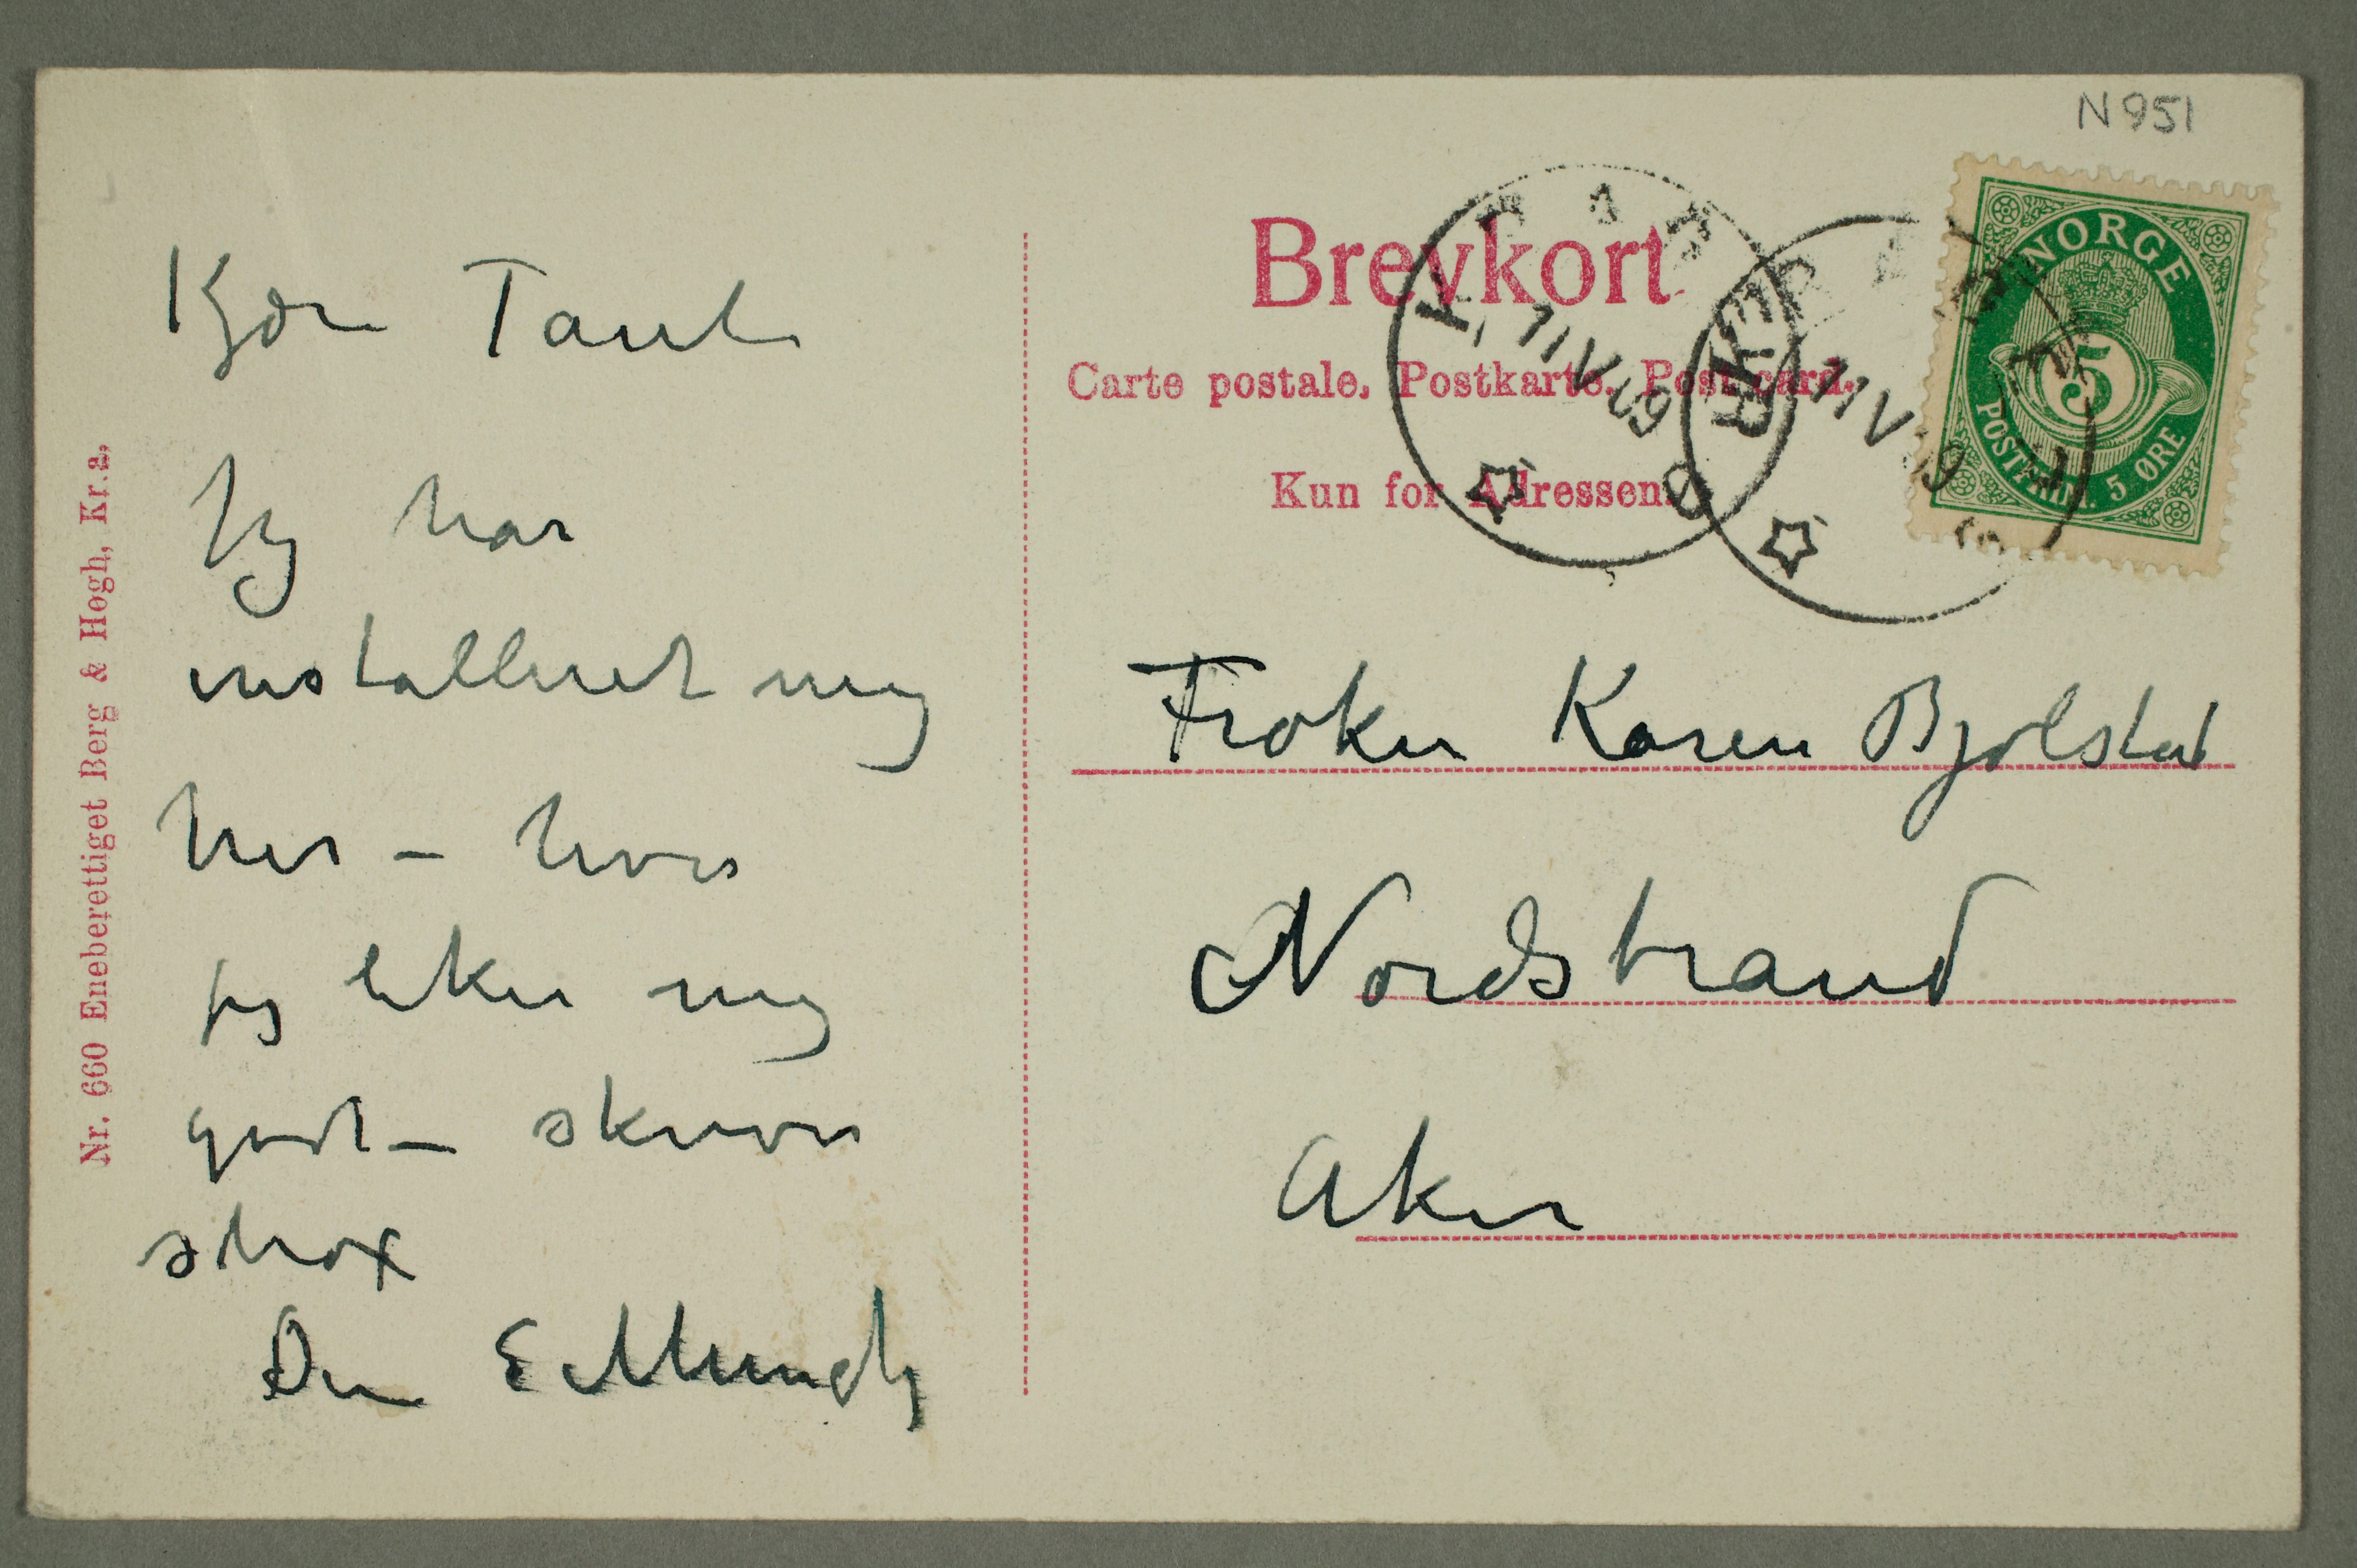 N 951
Brevkort
Carte postale. Postkarte. Post card.
Kun for Adressen.
KRAGERØ
11 V 09
KRAGERØ
11 V 09
NORGE
5
POSTFRIM. 5 ØRE
Kjære Tante
Jeg har
installeret mig
her – hvor
jeg liker mig
godt – skriver
strax
Din E Munch
Frøken Karen Bjølstad
Nordstrand
Aker
Nr. 660 Eneberettiget Berg & Høgh, Kr.a,